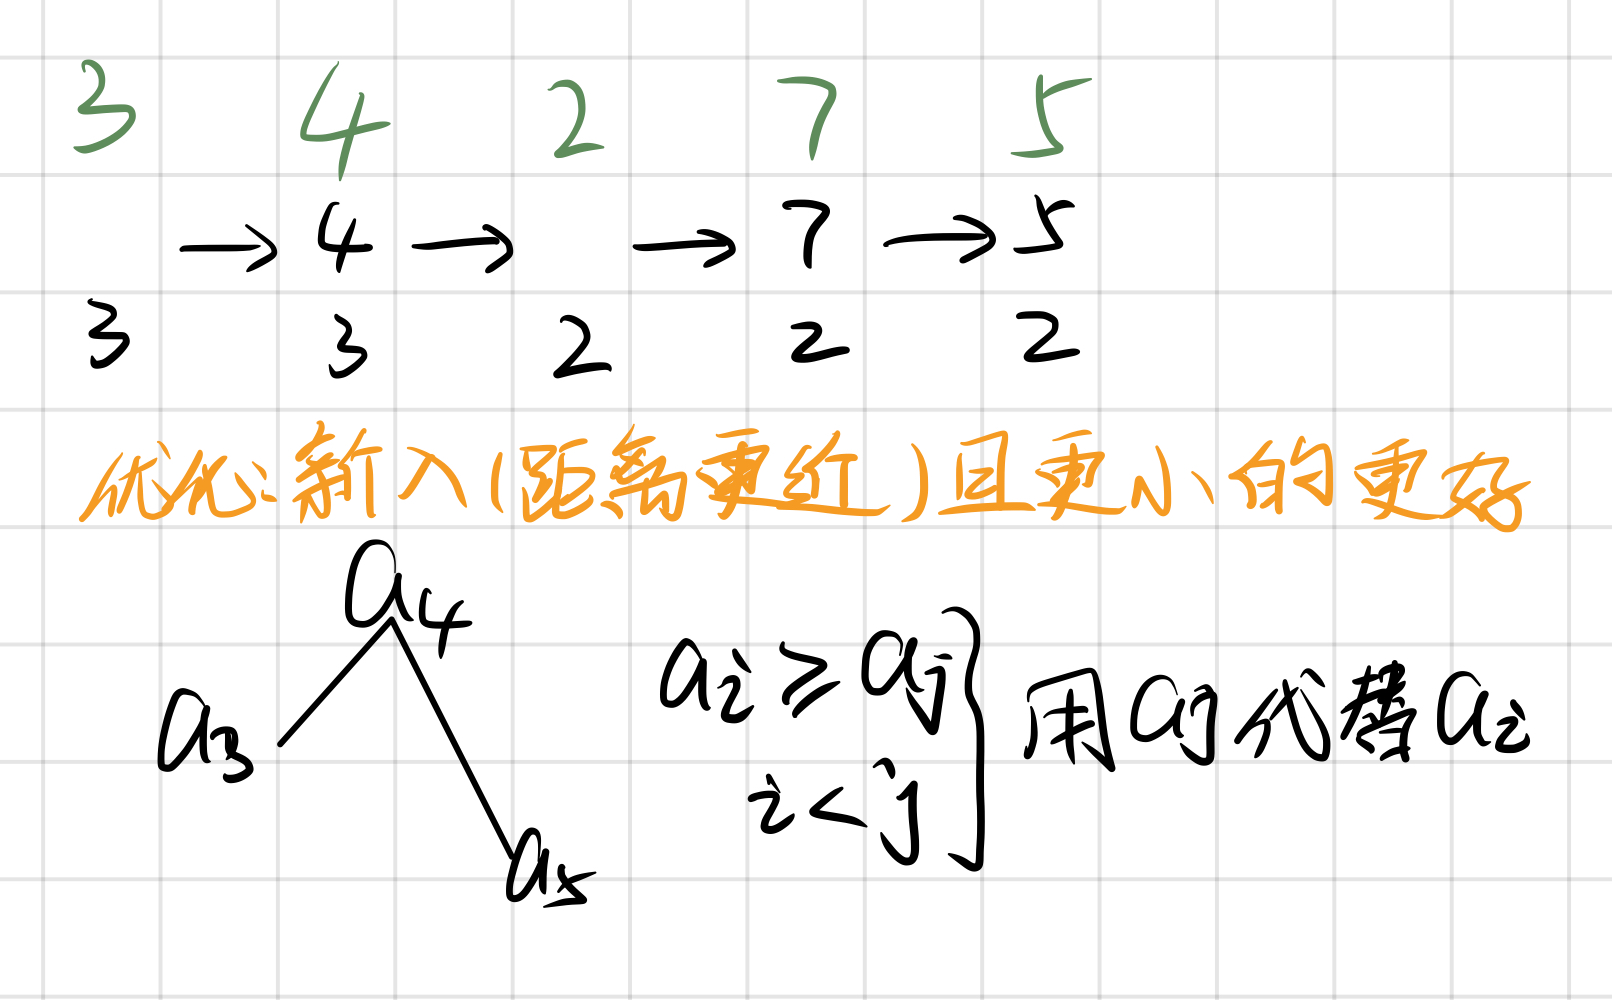 3 4 2 7 5
→ 4 → → 7 → 5
3 3 2 2 2
优化:新入(距离更近)且更小的更好
a₄
a₃
a₅
aᵢ ≥ aⱼ
i < j
} 用aⱼ代替aᵢ